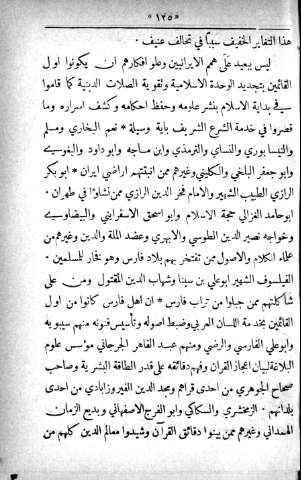 « ١٢٥ »
هذا التغاير الخفيف سببا في تخالف عنيف ·
ليس ببعيد على همم الايرانيين وعلو افكارهم ان يكونوا اول
القائمين بتجديد الوحدة الاسلامية وتقوية الصلات الدينية كما قاموا
في بداية الاسلام بنشر علومه وحفظ احكامه وكشف اسراره وما
قصروا في خدمة الشرع الشريف باية وسيلة * نعم البخاري ومسلم
والنيسابوري والنساي والترمذي وابن ماجه وابو داود والبغوي
وابو جعفر البلخي والكليني وغيرهم ممن انبتتهم اراضي ايران * ابو بكر
الرازي الطبيب الشهير والامام فخر الدين الرازي ممن نشاؤا في طهران ·
ابو حامد الغزالي حجة الاسلام وابو اسحق الاسفرايني والبيضاوي
وخواجه نصير الدين الطوسي والابهري وعضد الملة والدين وغيرهم من
علماء الكلام والاصول ممن تفتخر بهم بلاد فارس وهو فخار للمسلمين ·
الفيلسوف الشهير ابو علي بن سينا وشهاب الدين المقتول ومن على
شاكلتهم ممن جبلوا من تراب فارس * ان اهل فارس كانوا من اول
القائمين بخدمة اللسان العربي وضبط اصوله وتأسيس فنونه منهم سيبويه
وابو علي الفارسي والرضي ومنهم عبد القاهر الجرجاني مؤسس علوم
البلاغة لبيان اعجاز القران وفهم دقائقه على قدر الطاقة البشرية وصاحب
صحاح الجوهري من احدى قراهم ومجد الدين الفيروزابادي من احدى
بلدانهم · الزمخشري والسكاكي وابو الفرج الاصفهاني وبديع الزمان
الهمداني وغيرهم ممن بينوا دقائق القرآن وشيدوا معالم الدين كلهم من